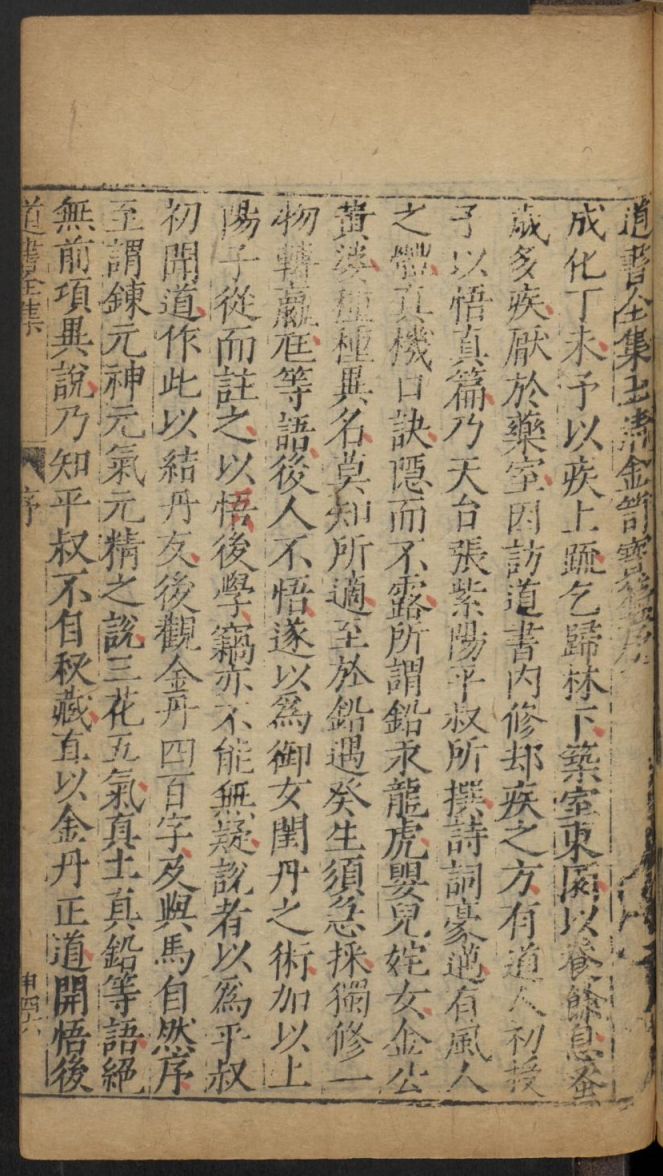 道書全集玉清金笥寶籙序
成化丁未予以疾上疏乞歸林下築室東園以養餘息蚤
歲多疾厭於藥室因訪道書内修却疾之方有道人初授
予以悟真篇乃天台張紫陽平叔所撰詩詞豪邁有風人
之體真機口訣隱而不露所謂鉛汞龍虎嬰兒姹女金公
黃婆種種異名莫知所適至於鉛遇癸生須急採獨修一
物轉羸尫等語後人不悟遂以為御女閨丹之術加以上
陽子從而註之以悟後學竊亦不能無疑說者以為平叔
初聞道作此以結丹友後觀金丹四百字及與馬自然序
至謂鍊元神元氣元精之說三花五氣真土真鉛等語絕
無前項異說乃知平叔不自秘藏直以金丹正道開悟後
道書全集
序